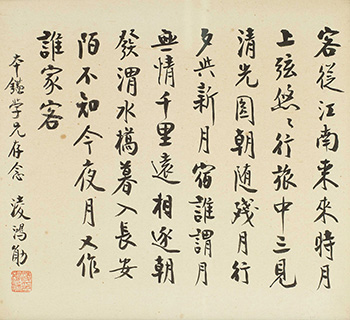 客從江南來來時月
上弦悠〻行旅中三見
清光圓朝随殘月行
夕與新月宿誰謂月
無情千里遠相逐朝
發渭水橋暮入長安
陌不知今夜月又作
誰家客
本鑑学兄存念 凌鴻勛